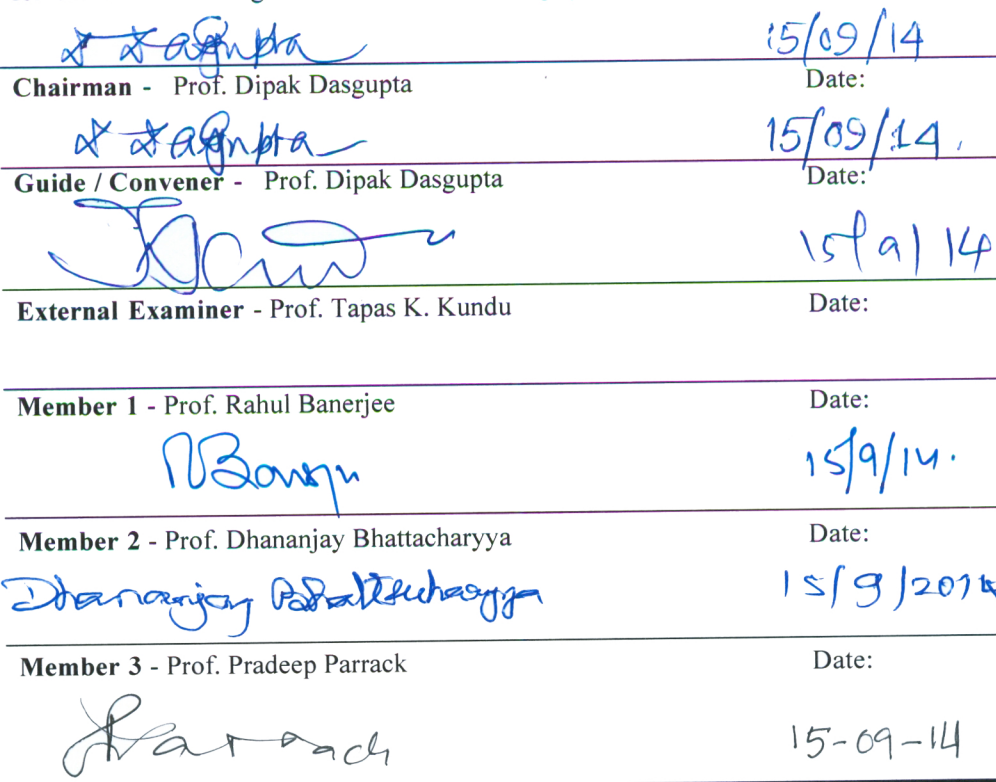 D Dasgupta 15/09/14
Chairman - Prof. Dipak Dasgupta Date:
D Dasgupta 15/09/14.
Guide / Convener - Prof. Dipak Dasgupta Date:
15/9/14
External Examiner - Prof. Tapas K. Kundu Date:
Member 1 - Prof. Rahul Banerjee Date:
15/9/14.
Member 2 - Prof. Dhananjay Bhattacharyya Date:
Dhananjay Bhattacharyya 15/9/2014
Member 3 - Prof. Pradeep Parrack Date:
Parrack 15-09-14